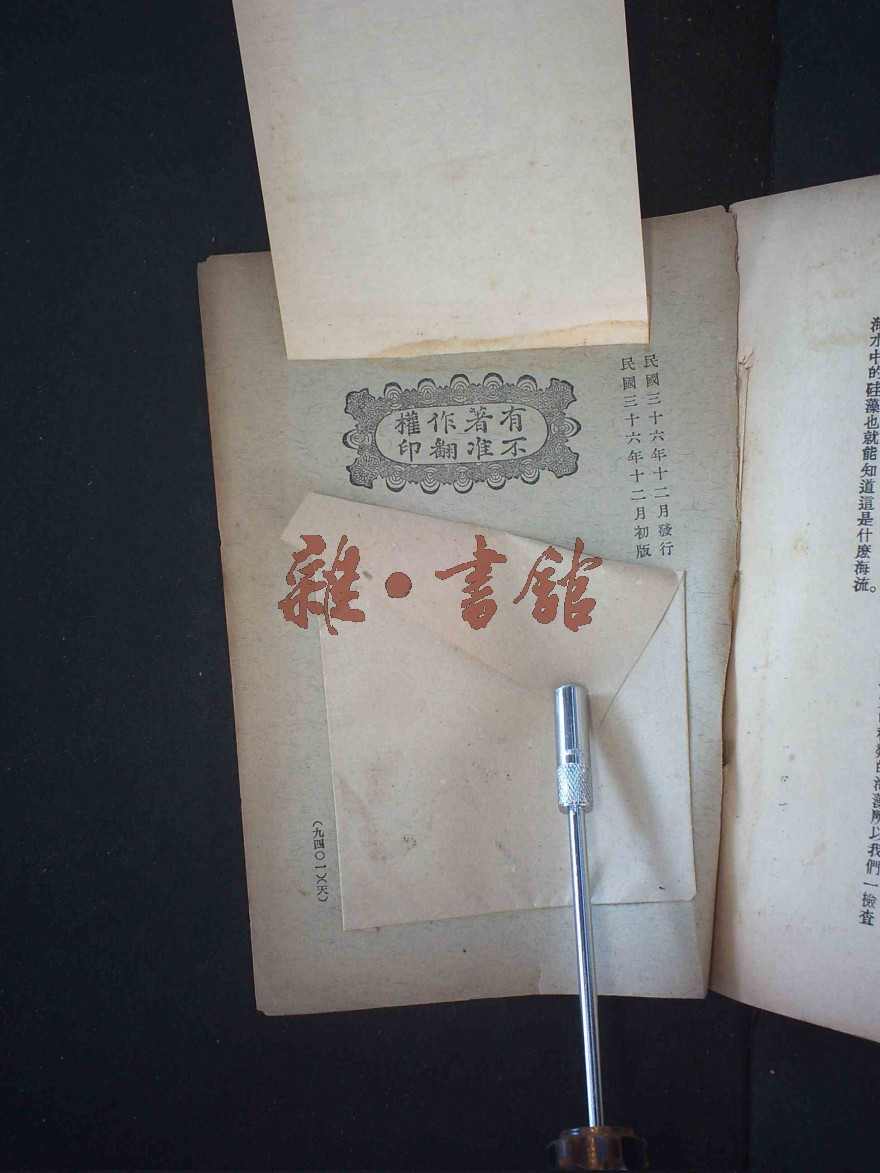 的海藻所以我們一檢查
海水中的硅藻也就能知道這是什麽海流。
民國三十六年十二月發行
民國三十六年十二月初版
有著作權
不准翻印
雜•書館
(九四〇一)(天)